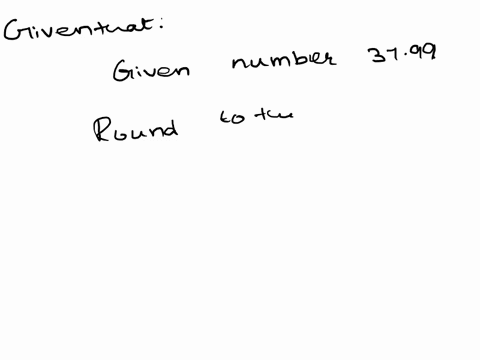 Given that:
Given number 37.99
Round to the